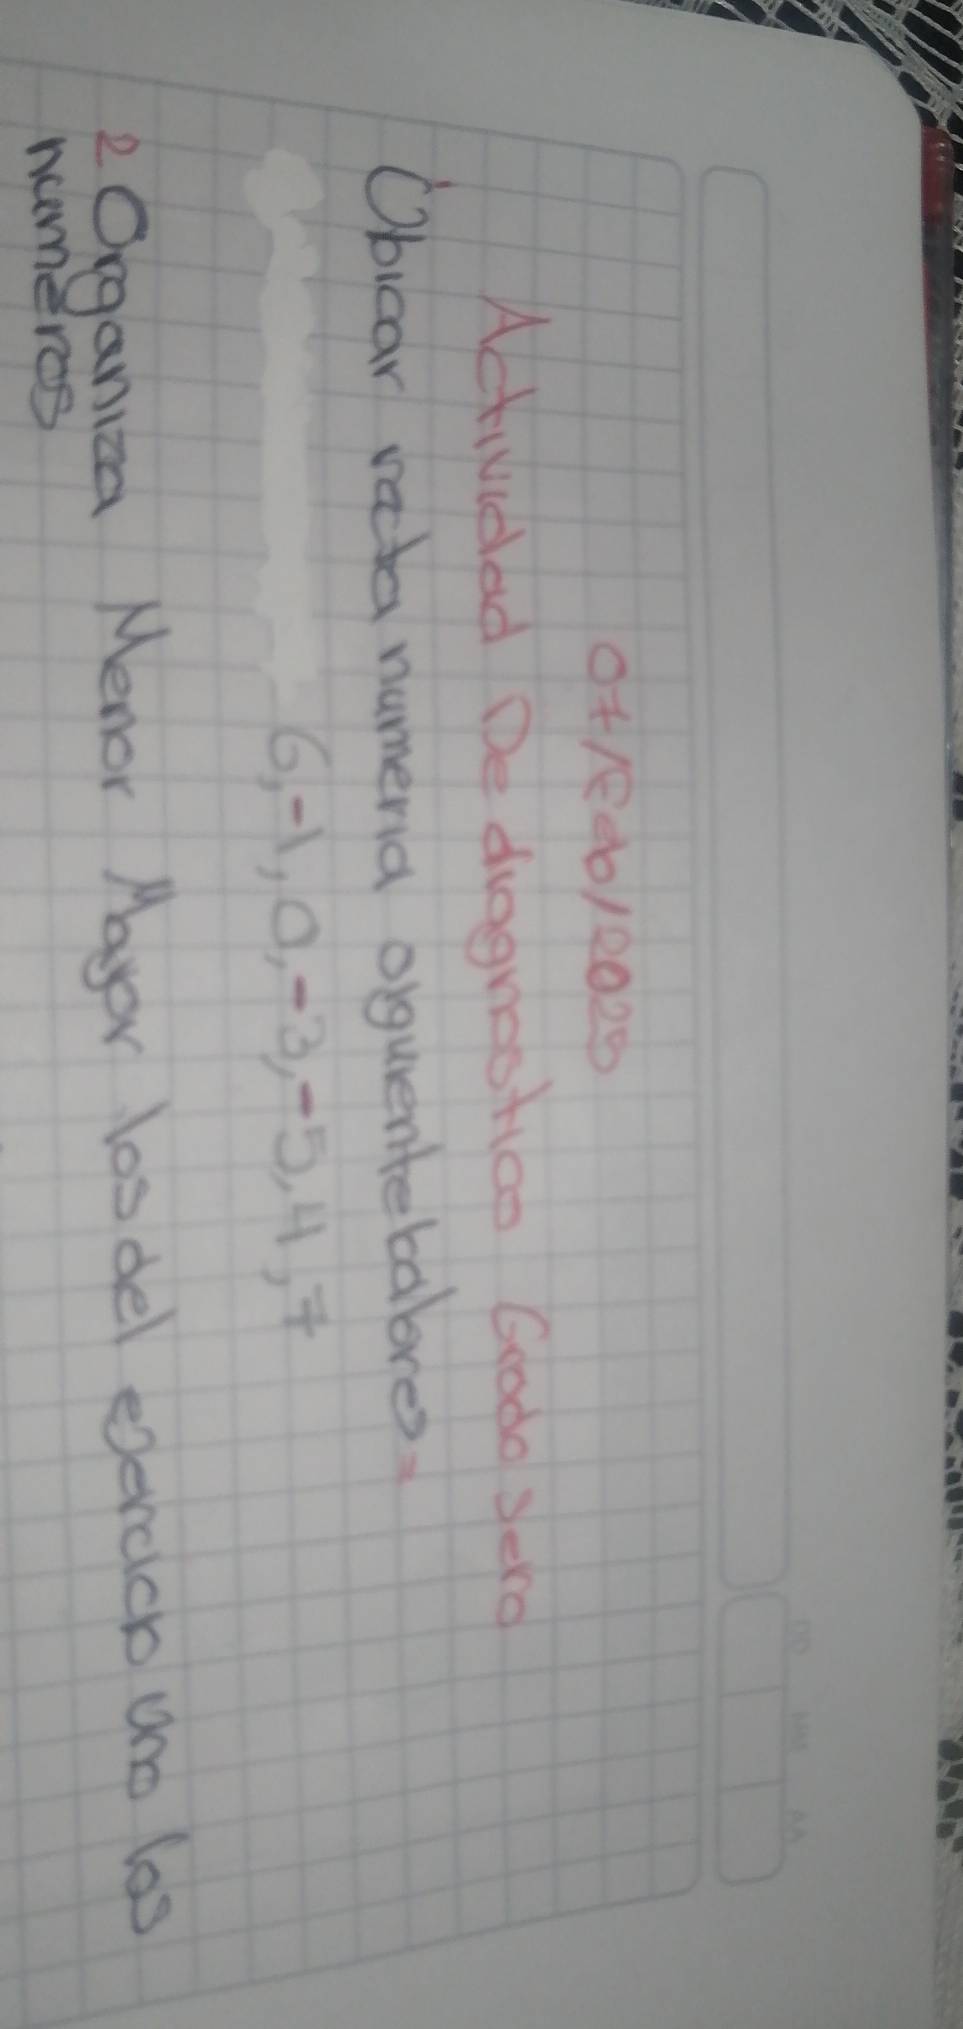 07/Feb/2025
Actividad De diagnostico Grado Sero
Ubicar recta numerica siguientebalores=
6,-1,0,-3,-5,4,7
2 Organiza Menor Mayor los del ejercicio uno los
numeros